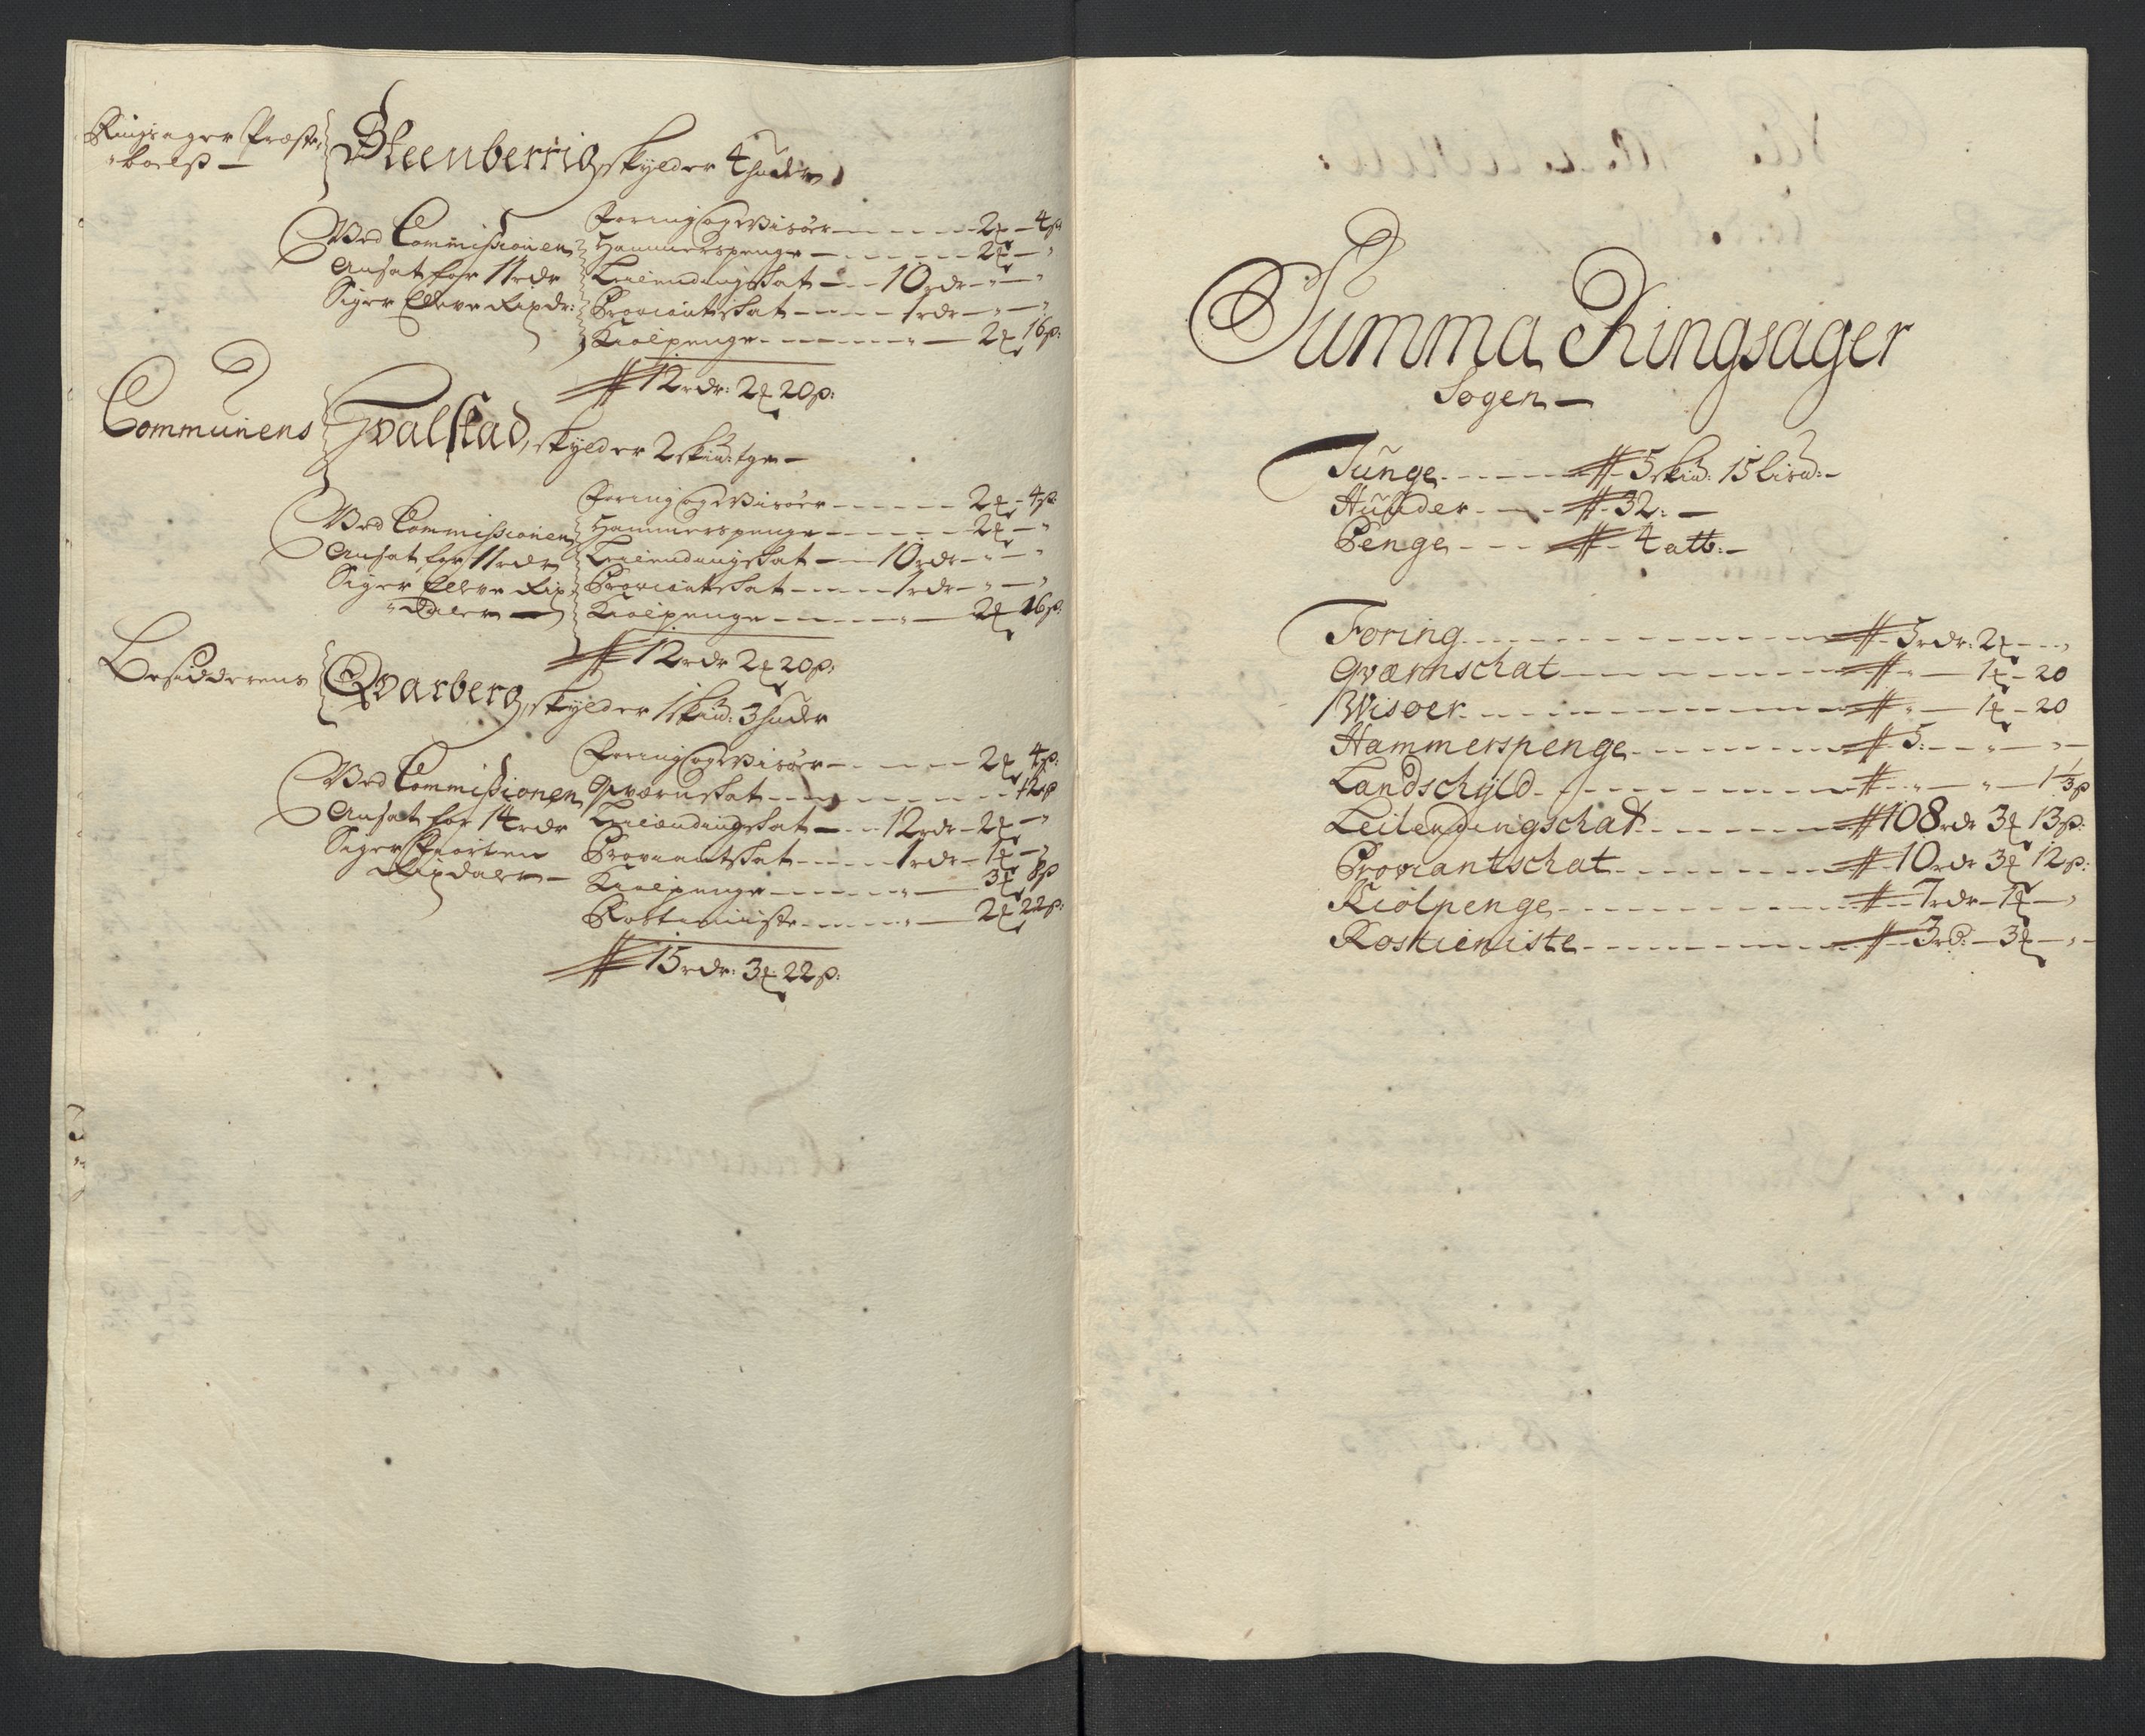 Ringsager Præste-
boelß —
Steenberrig, skylder 4 huder
Ved Commissionen
Ansat for 11 rdr
Siger Elleve Rixdr:
Foring og Wisöer — 2 ¢ — 4 ß
Hammerspenge — 2 ¢ — "
Leilendingskat — 10 rdr — " — "
Proviantskat — 1 rdr — " — "
Kiölpenge — " — 2 ¢ 16 ß:
# 12 rdr: 2 ¢ 20 ß:
Communens
Tvalstad, skylder 2 skind: tge —
Ved Commissionen
Ansat for 11 rdr
Siger Elleve Rix-
"daler —
Foring og Wisöer — 2 ¢ — 4 ß:
Hammerspenge — 2 ¢ — "
Leilendingskat — 10 rdr — " — "
Proviantskat — 1 rdr — " — "
Kiolpenge — " — 2 ¢ 16 ß:
# 12 rdr 2 ¢ 20 ß:
Besidderens
Qvarberg, skylder 1 skind: 3 huder
Ved Commissionen
Ansat for 14 rdr
Siger Fiorten
Rixdaler —
Foring og Wisöer — 2 ¢ 4 ß:
Qværnskat — 12 ß
Leilændingskat — 12 rdr — 2 ¢ — "
Proviantskat — 1 rdr — 1 ¢ — "
Kiolpenge — " — 3 ¢ 8 ß
Rostieniste — " — 2 ¢ 22 ß:
# 15 rdr: 3 ¢ 22 ß:
Summa Ringsager
Sogen —
Tunge — # 5 skind: 15 lisd: —
Huuder — # 32: —
Penge — # 4 att: —
Foring — # 5 rdr: 2 ¢ — "
Qværnschat — # " — 1 ¢ — 20
Wisoer — # " — 1 ¢ — 20
Hammerspenge — # 5: — " — " —
Landschyld — # " — " — 1 1/3 ß
Leilendingschat — # 108 rdr 3 ¢ 13 ß:
Proviantschat — # 10 rdr 3 ¢ 12 ß:
Kiölpenge — # 7 rdr — 1 ¢ — "
Rostieniste — # 3 rd: — 3 ¢ — " —